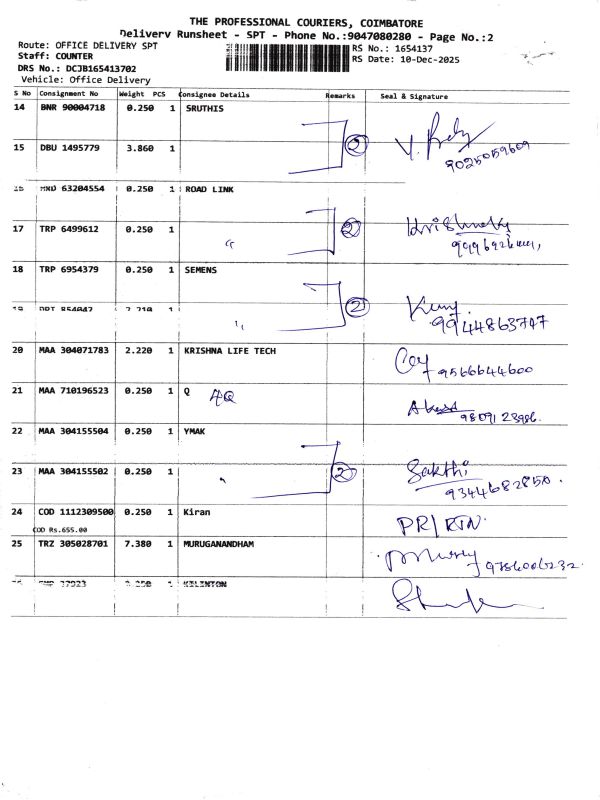 THE PROFESSIONAL COURIERS, COIMBATORE
Delivery Runsheet - SPT - Phone No.:9047080280 - Page No.:2
Route: OFFICE DELIVERY SPT
Staff: COUNTER
DRS No.: DCJB165413702
Vehicle: Office Delivery
RS No.: 1654137
RS Date: 10-Dec-2025
S No Consignment No Weight PCS Consignee Details Remarks Seal & Signature
14 BNR 90004718 0.250 1 SRUTHIS
15 DBU 1495779 3.860 1 2 9025059609
63204554 0.250 1 ROAD LINK
17 TRP 6499612 0.250 1 " 2
18 TRP 6954379 0.250 1 SEMENS
19 1 " 2 9944863747
20 MAA 304071783 2.220 1 KRISHNA LIFE TECH 9566644600
21 MAA 710196523 0.250 1 Q
22 MAA 304155504 0.250 1 YMAK
23 MAA 304155502 0.250 1 2 Sakthi 9344682850.
24 COD 1112309500 0.250 1 Kiran PR/RTN.
COD Rs.655.00
25 TRZ 305028701 7.380 1 MURUGANANDHAM
1 KILINTON